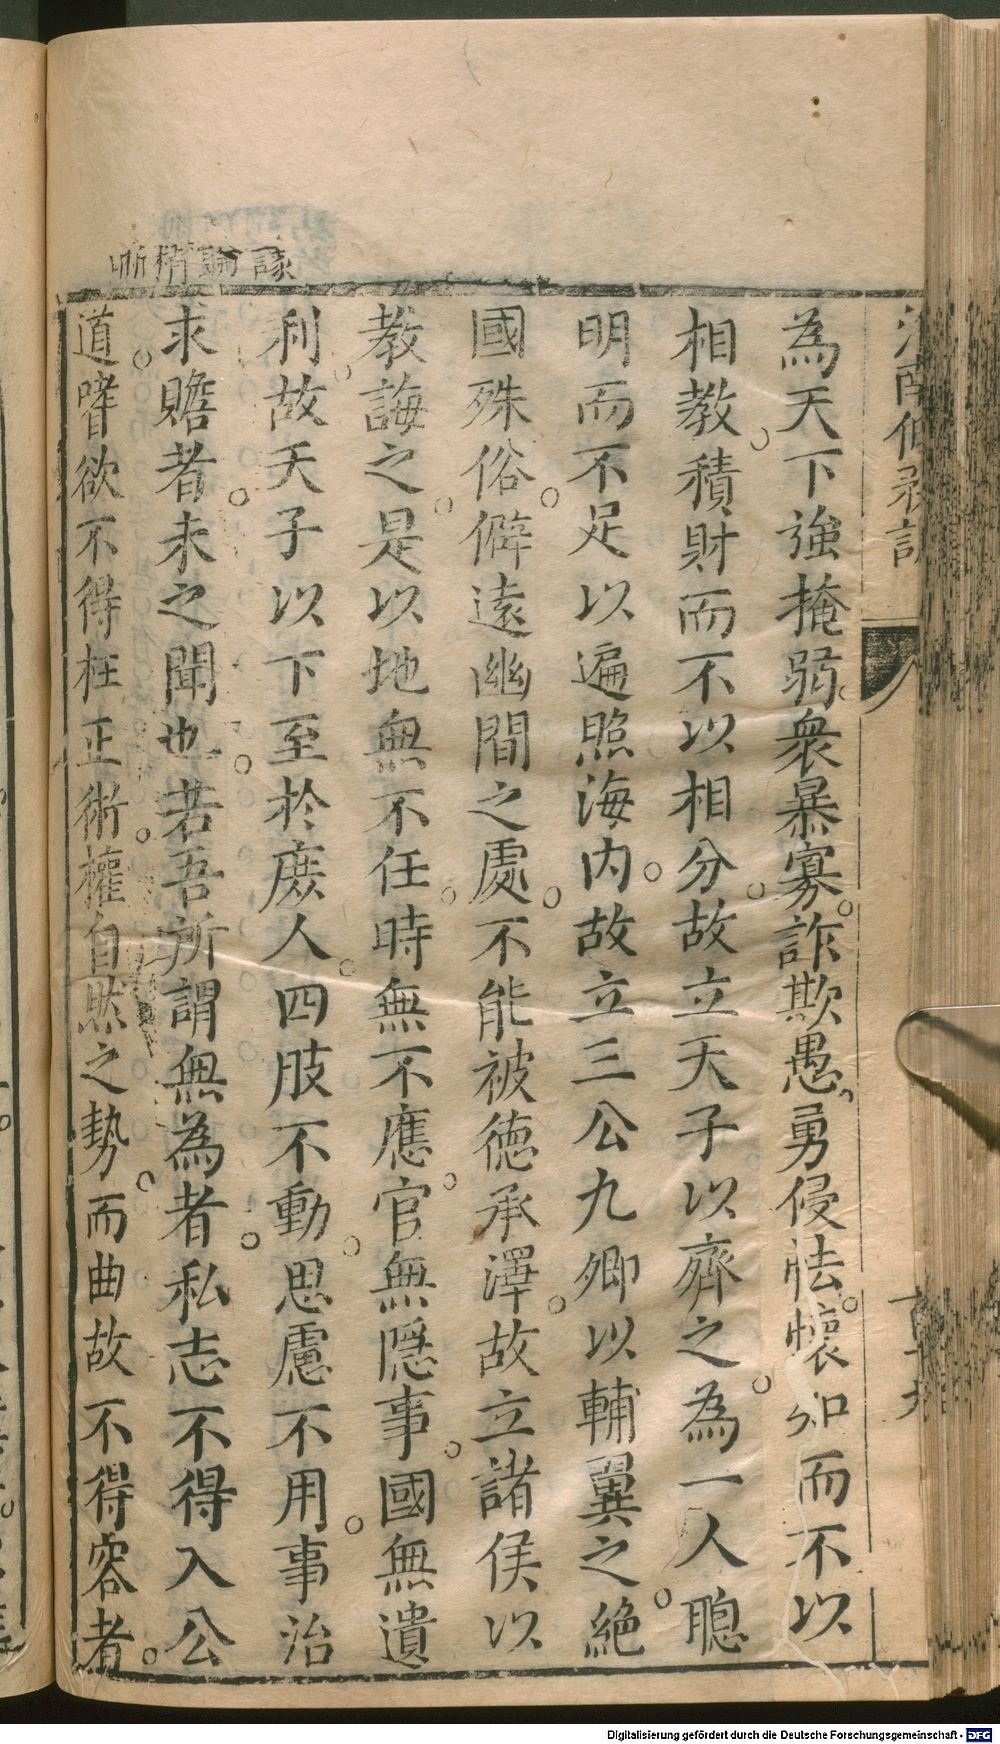 為天下強掩弱衆暴寡詐欺愚勇侵怯懷知而不以
相教積財而不以相分故立天子以齊之為一人聰
明而不足以遍照海内故立三公九卿以輔翼之絶
國殊俗僻遠幽間之處不能被德承澤故立諸侯以
教誨之是以地無不任時無不應官無隱事國無遺
利故天子以下至於庶人四肢不動思慮不用事治
求贍者未之聞也若吾所謂無為者私志不得入公
道嗜欲不得枉正術權自然之勢而曲故不得容者
Digitalisierung gefördert durch die Deutsche Forschungsgemeinschaft - DFG